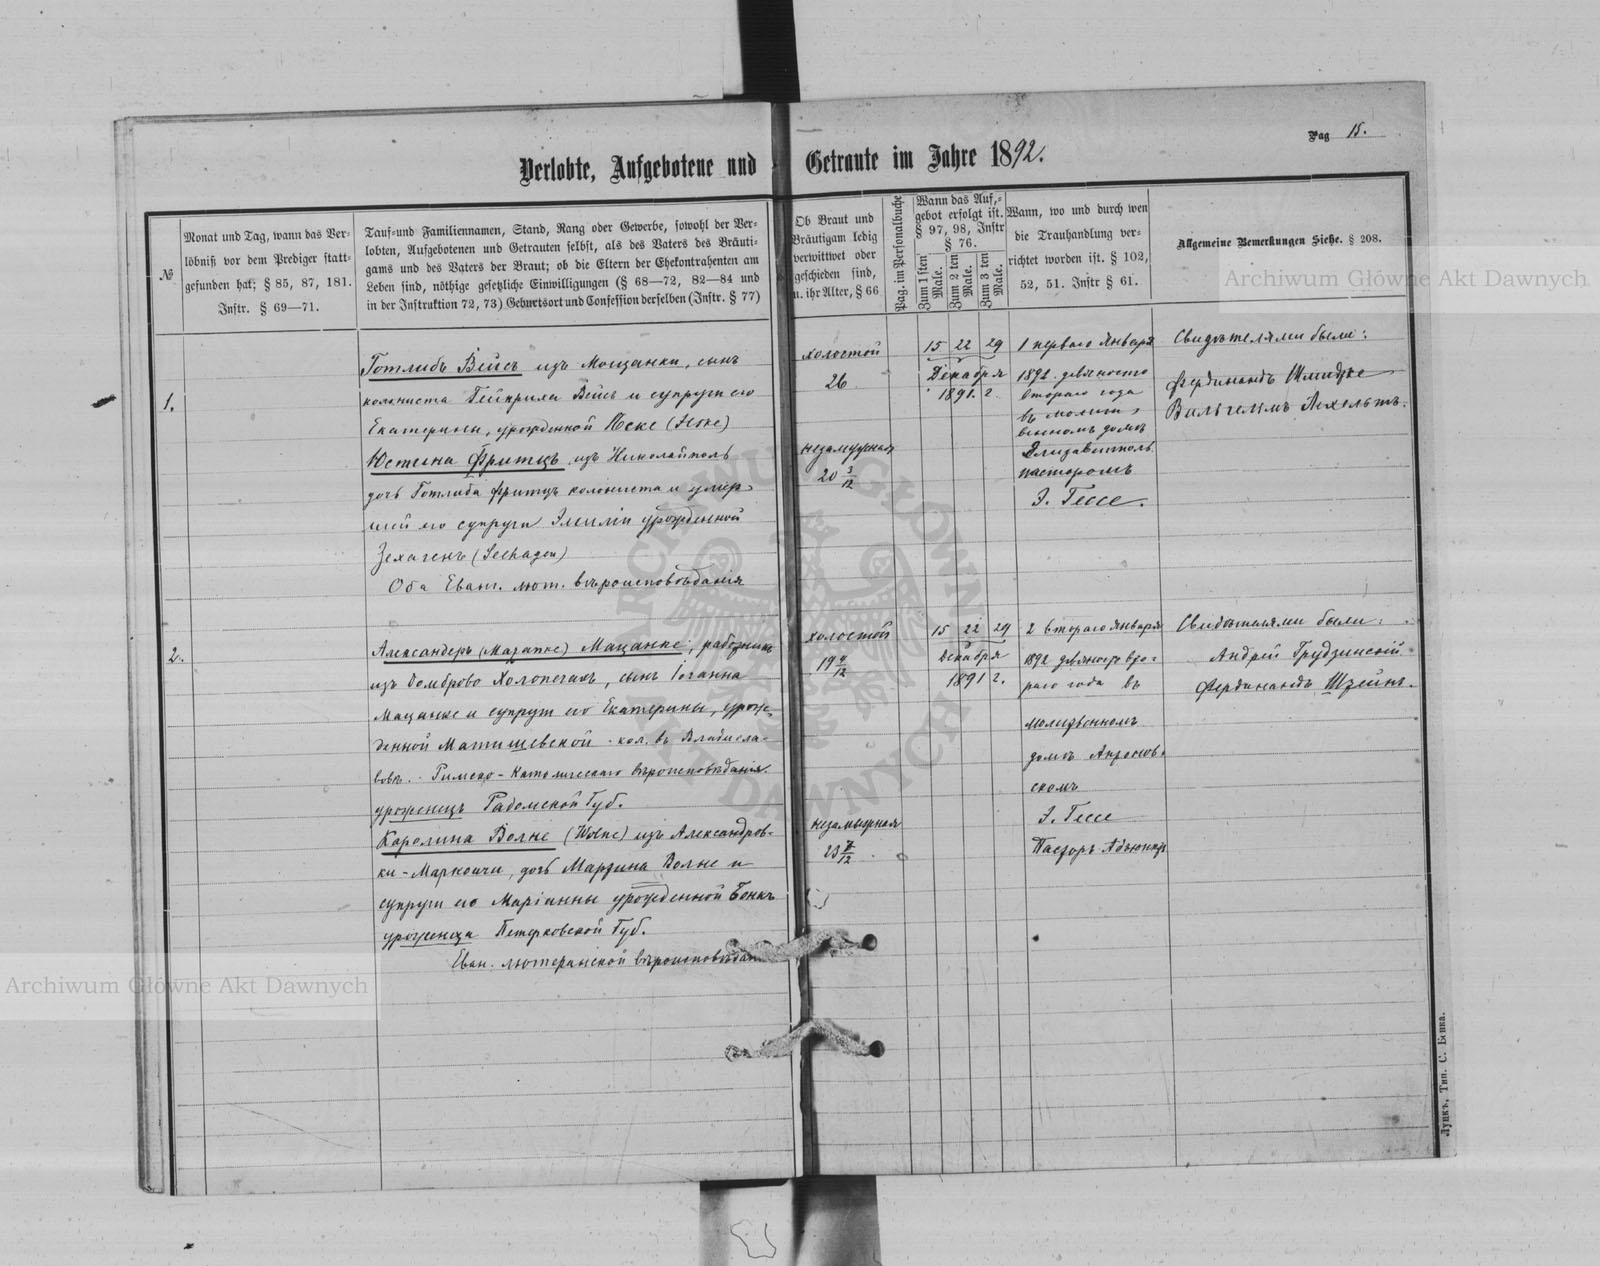 Pag 15.
Verlobte, Aufgebotene und Getraute im Jahre 1892.
№
Monat und Tag, wann das Ver-
löbniß vor dem Prediger statt-
gefunden hat; § 85, 87, 181.
Instr. § 69—71.
Tauf-und Familiennamen, Stand, Rang oder Gewerbe, sowohl der Ver-
lobten, Aufgebotenen und Getrauten selbst, als des Vaters des Bräuti-
gams und des Vaters der Braut; ob die Eltern der Ehekontrahenten am
Leben sind, nöthige gesetzliche Einwilligungen (§ 68—72, 82—84 und
in der Instruktion 72, 73) Geburtsort und Confession derselben (Instr. § 77)
Ob Braut und
Bräutigam ledig
verwittwet oder
geschieden sind,
u. ihr Alter, § 66
Pag. im Personalbuche
Wann das Auf,-
gebot erfolgt ist.
§ 97, 98, Instr
§ 76.
Zum 1 sten
Male.
Zum 2 ten
Male.
Zum 3 ten
Male.
Wann, wo und durch wen
die Trauhandlung ver-
richtet worden ist. § 102,
52, 51. Instr § 61.
Allgemeine Bemerkungen Siehe. § 208.
1.
Готлибъ Вейсъ изъ Мощанки, сынъ
колониста Гейнриха Вейсъ и супруги его
Екатерины, урожденной Іеске (Jeske)
Юстина Фритцъ изъ Николайполь
дочь Готлиба Фритцъ колониста и умер-
шей его супруги Эмиліи урожденной
Зехагенъ (Seehagen)
Оба Еванг. лют. вѣроисповѣданія
холостой
26
незамужная
20 3/12
15 22 29
Декабря
1891 г.
1 перваго Января
1892 девяносто
втораго года
въ молит-
венномъ домѣ
Елизаветполь
пасторомъ
Э. Гессе.
Свидѣтелями были:
Фердинандъ Шмидтке
Вильгельмъ Аксхольтъ.
2.
Александеръ (Мацанке) Мацанке, работникъ
изъ Домброво Холопечахъ, сынъ Іоганна
Мацанке и супруги его Екатерины, урож-
денной Матишевской - кол. въ Владисла-
вовк. Римско-Католическаго вѣроисповѣданія.
уроженецъ Радомской Губ.
Каролина Волне (Wolne) изъ Александров-
ки-Марковичи, дочь Мартина Волне и
супруги его Маріанны урожденной Бонкъ
уроженца Петрковской Губ.
Еван. лютеранской вѣроисповѣдан
холостой
19 4/12
незамужная
23 7/12
15 22 29
Декабря
1891 г.
2 втораго Января
1892 девяносто вто-
раго года въ
молитвенномъ
домѣ
скомъ
Э. Гессе
Пасторъ Адъюнктъ
Свидѣтелями были:
Андрей Грудзинскій
Фердинандъ Штейнъ.
Луцкъ, Тип. С. Бенка.
Archiwum Główne Akt Dawnych
Archiwum Główne Akt Dawnych
ARCHIWUM GŁÓWNE AKT DAWNYCH